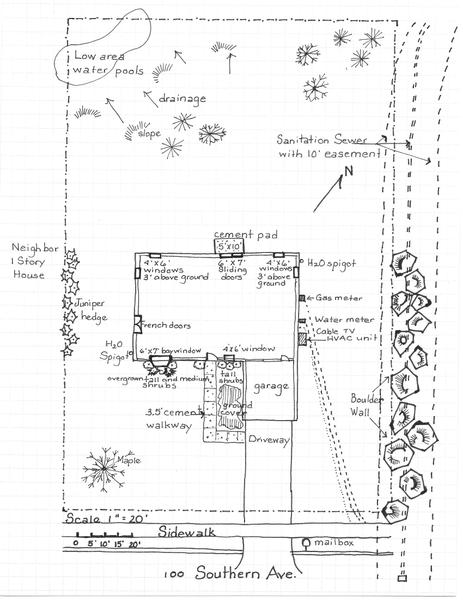 Low area
water pools
drainage
slope
Sanitation Sewer
with 10' easement
N
cement pad
5'x10'
Neighbor
1 Story
House
4'x6'
windows
3' above ground
6'x7'
Sliding
doors
4'x6'
windows
3' above
ground
H2O spigot
Gas meter
Juniper
hedge
French doors
Water meter
Cable TV
HVAC unit
H2O
Spigot
6'x7' baywindow
4x6' window
overgrown tall and medium
shrubs
tall
shrubs
garage
ground
cover
3.5' cement
walkway
Boulder
Wall
Driveway
Maple
Scale 1" = 20'
Sidewalk
0 5' 10' 15' 20'
mailbox
100 Southern Ave.